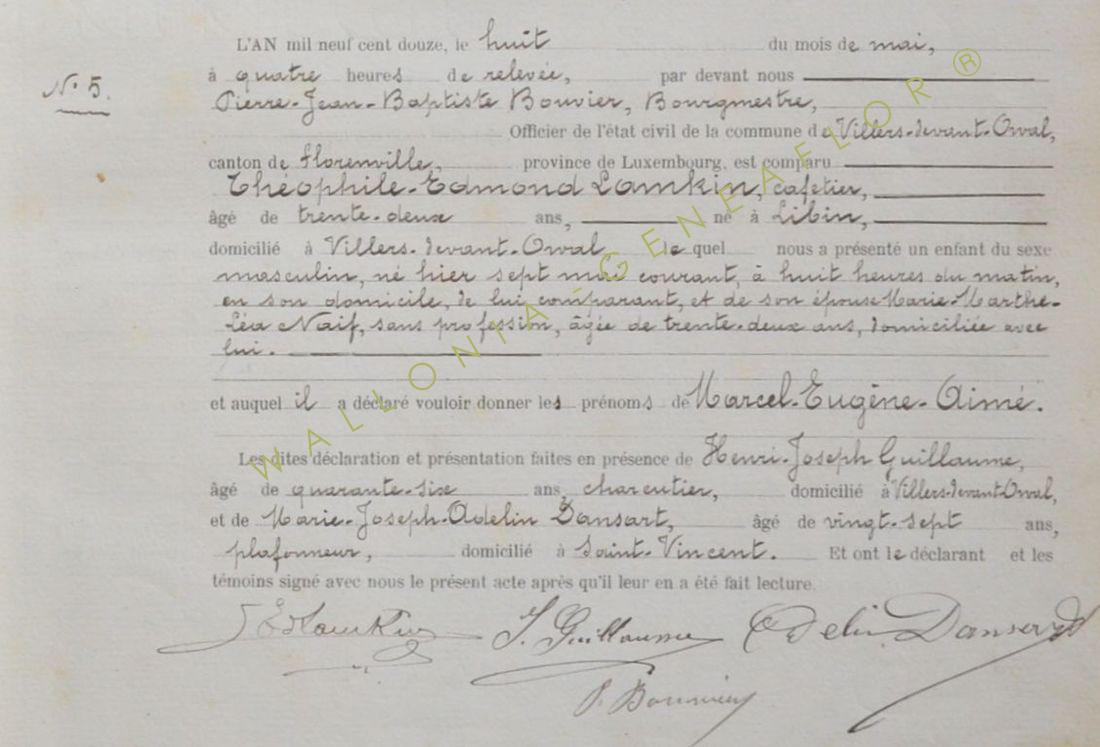 L'AN mil neuf cent douze, le huit du mois de mai,
N° 5.
à quatre heures de relevée, par devant nous
Pierre-Jean-Baptiste Bouvier, Bourgmestre,
Officier de l'état civil de la commune de Villers-devant-Orval,
canton de Florenville, province de Luxembourg, est comparu
Théophile-Edmond Lamkin, cafetier,
âgé de trente-deux ans, né à Libin,
domicilié à Villers-devant-Orval lequel nous a présenté un enfant du sexe
masculin, né hier sept mai courant, à huit heures du matin,
en son domicile, de lui comparant, et de son épouse Marie-Marthe-
Léa Naif, sans profession, âgée de trente-deux ans, domiciliée avec
lui.
et auquel il a déclaré vouloir donner les prénoms de Marcel-Eugène-Aimé.
Les dites déclaration et présentation faites en présence de Henri-Joseph Guillaume,
âgé de quarante-six ans, charcutier, domicilié à Villers-devant-Orval,
et de Marie-Joseph-Adelin Dansart, âgé de vingt-sept ans,
plafonneur, domicilié à Saint-Vincent. Et ont le déclarant et les
témoins signé avec nous le présent acte après qu'il leur en a été fait lecture.
J. Guillaume Adelin Dansart
P. Bouvier
WALLONIA - GENEAFLOR ®